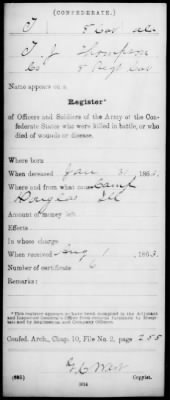 (CONFEDERATE.)
T 8 Cav Ala
T. J. Thompson
Co 8 Regt Cav
Name appears on a
Register*
of Officers and Soldiers of the Army of the Confederate States who were killed in battle, or who
died of wounds or disease.
Where born
When deceased Jan 186
Where and from what cause Camp
Douglas Ill
Amount of money left
Effects
In whose charge
When received Aug 1 1863.
Number of certificate 6
Remarks:
*This registry appears to have been compiled in the Adjutant
and Inspector General's Office from returns furnished by Surgeons
and by Regimental and Company Officers.
Confed. Arch., Chap. 10, File No. 2, page 255
G. C. West
(685)
Copyist.